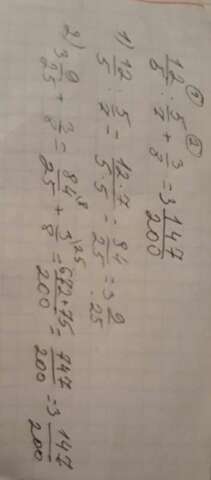 ① ②
12/5 : 5/7 + 3/8 = 3 147/200
1) 12/5 : 5/7 = 12·7/5·5 = 84/25 = 3 9/25
2) 3 9/25 + 3/8 = 84/25 \8 + 3/8 \25 = 672+75/200 = 747/200 = 3 147/200